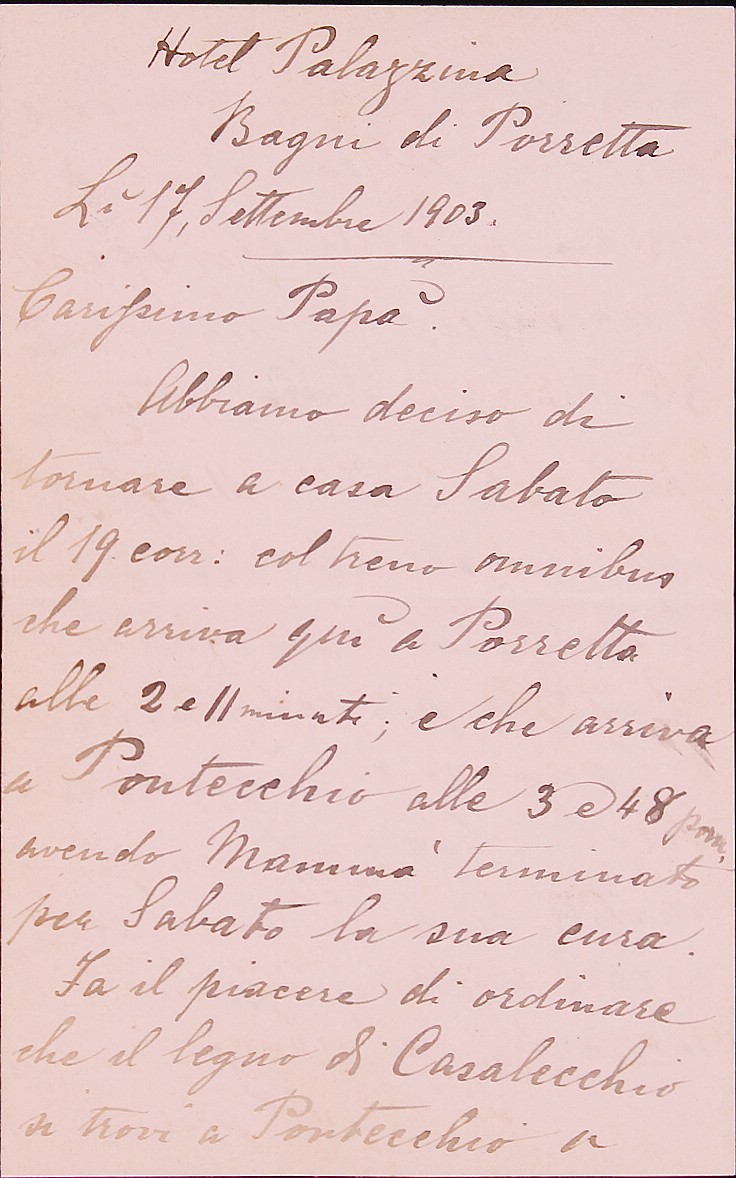 Hotel Palazzina
Bagni di Porretta
Li 17, Settembre 1903.
Carissimo Papà.
Abbiamo deciso di
tornare a casa Sabato
il 19 corr: col treno omnibus
che arriva quì a Porretta
alle 2 e 11 minuti; e che arriva
a Pontecchio alle 3 e 48 pom.
avendo Mammà terminato
per Sabato la sua cura.
Fa il piacere di ordinare
che il legno di Casalecchio
si trovi a Pontecchio a